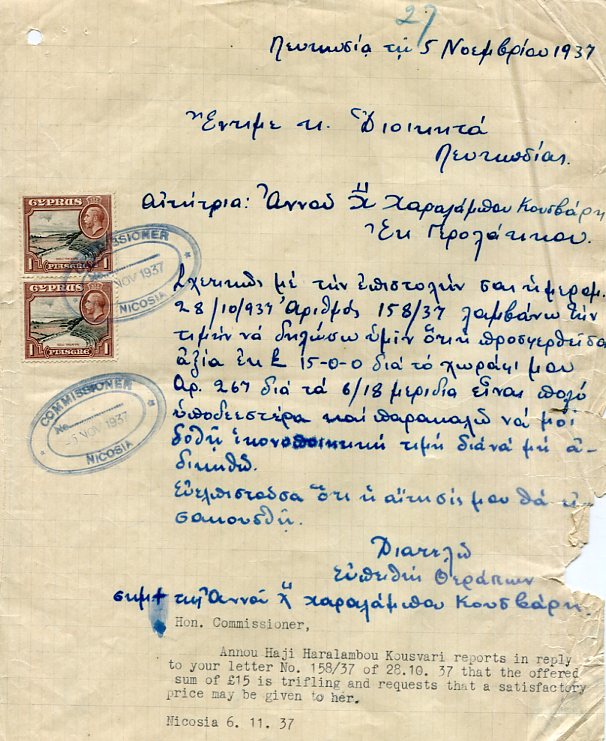 27
Λευκωσία τῇ 5 Νοεμβρίου 1937
Ἔντιμε κ. Διοικητά
Λευκωσίας.
Αἰτήτρια: Ἀννοῦ Χ" Χαραλάμπου Κουσβάρη
Ἐκ
CYPRUS
1 PIASTRE 1
COMMISSIONER
NOV 1937
NICOSIA
CYPRUS
1 PIASTRE 1
COMMISSIONER
No.
5 NOV 1937
NICOSIA
Σχετικῶς μέ τήν ἐπιστολήν σας ἡμερομ.
28/10/937 Ἀριθμός 158/37 λαμβάνω τήν
τιμήν νά δηλώσω ὑμῖν ὅτι ἡ προσφερθεῖσα
ἀξία ἐκ £ 15-0-0 διά τό χωράφι μου
Αρ. 267 διά τά 6/18 μερίδια εἶναι πολύ
ὑποδεεστέρα καί παρακαλῶ νά μοί
δοθῇ ἱκανοποιητική τιμή διά νά μή ἀ-
δικηθῶ.
Εὐελπιστοῦσα ὅτι ἡ αἴτησίς μου θά εἰ-
σακουσθῇ.
Διατελῶ
Εὐπειθής Θεράπων
σημ + της Ἀννοῦ Χ" Χαραλάμπου Κουσβάρη.
Hon. Commissioner,
Annou Haji Haralambou Kousvari reports in reply
to your letter No. 158/37 of 28.10. 37 that the offered
sum of £15 is trifling and requests that a satisfactory
price may be given to her.
Nicosia 6. 11. 37